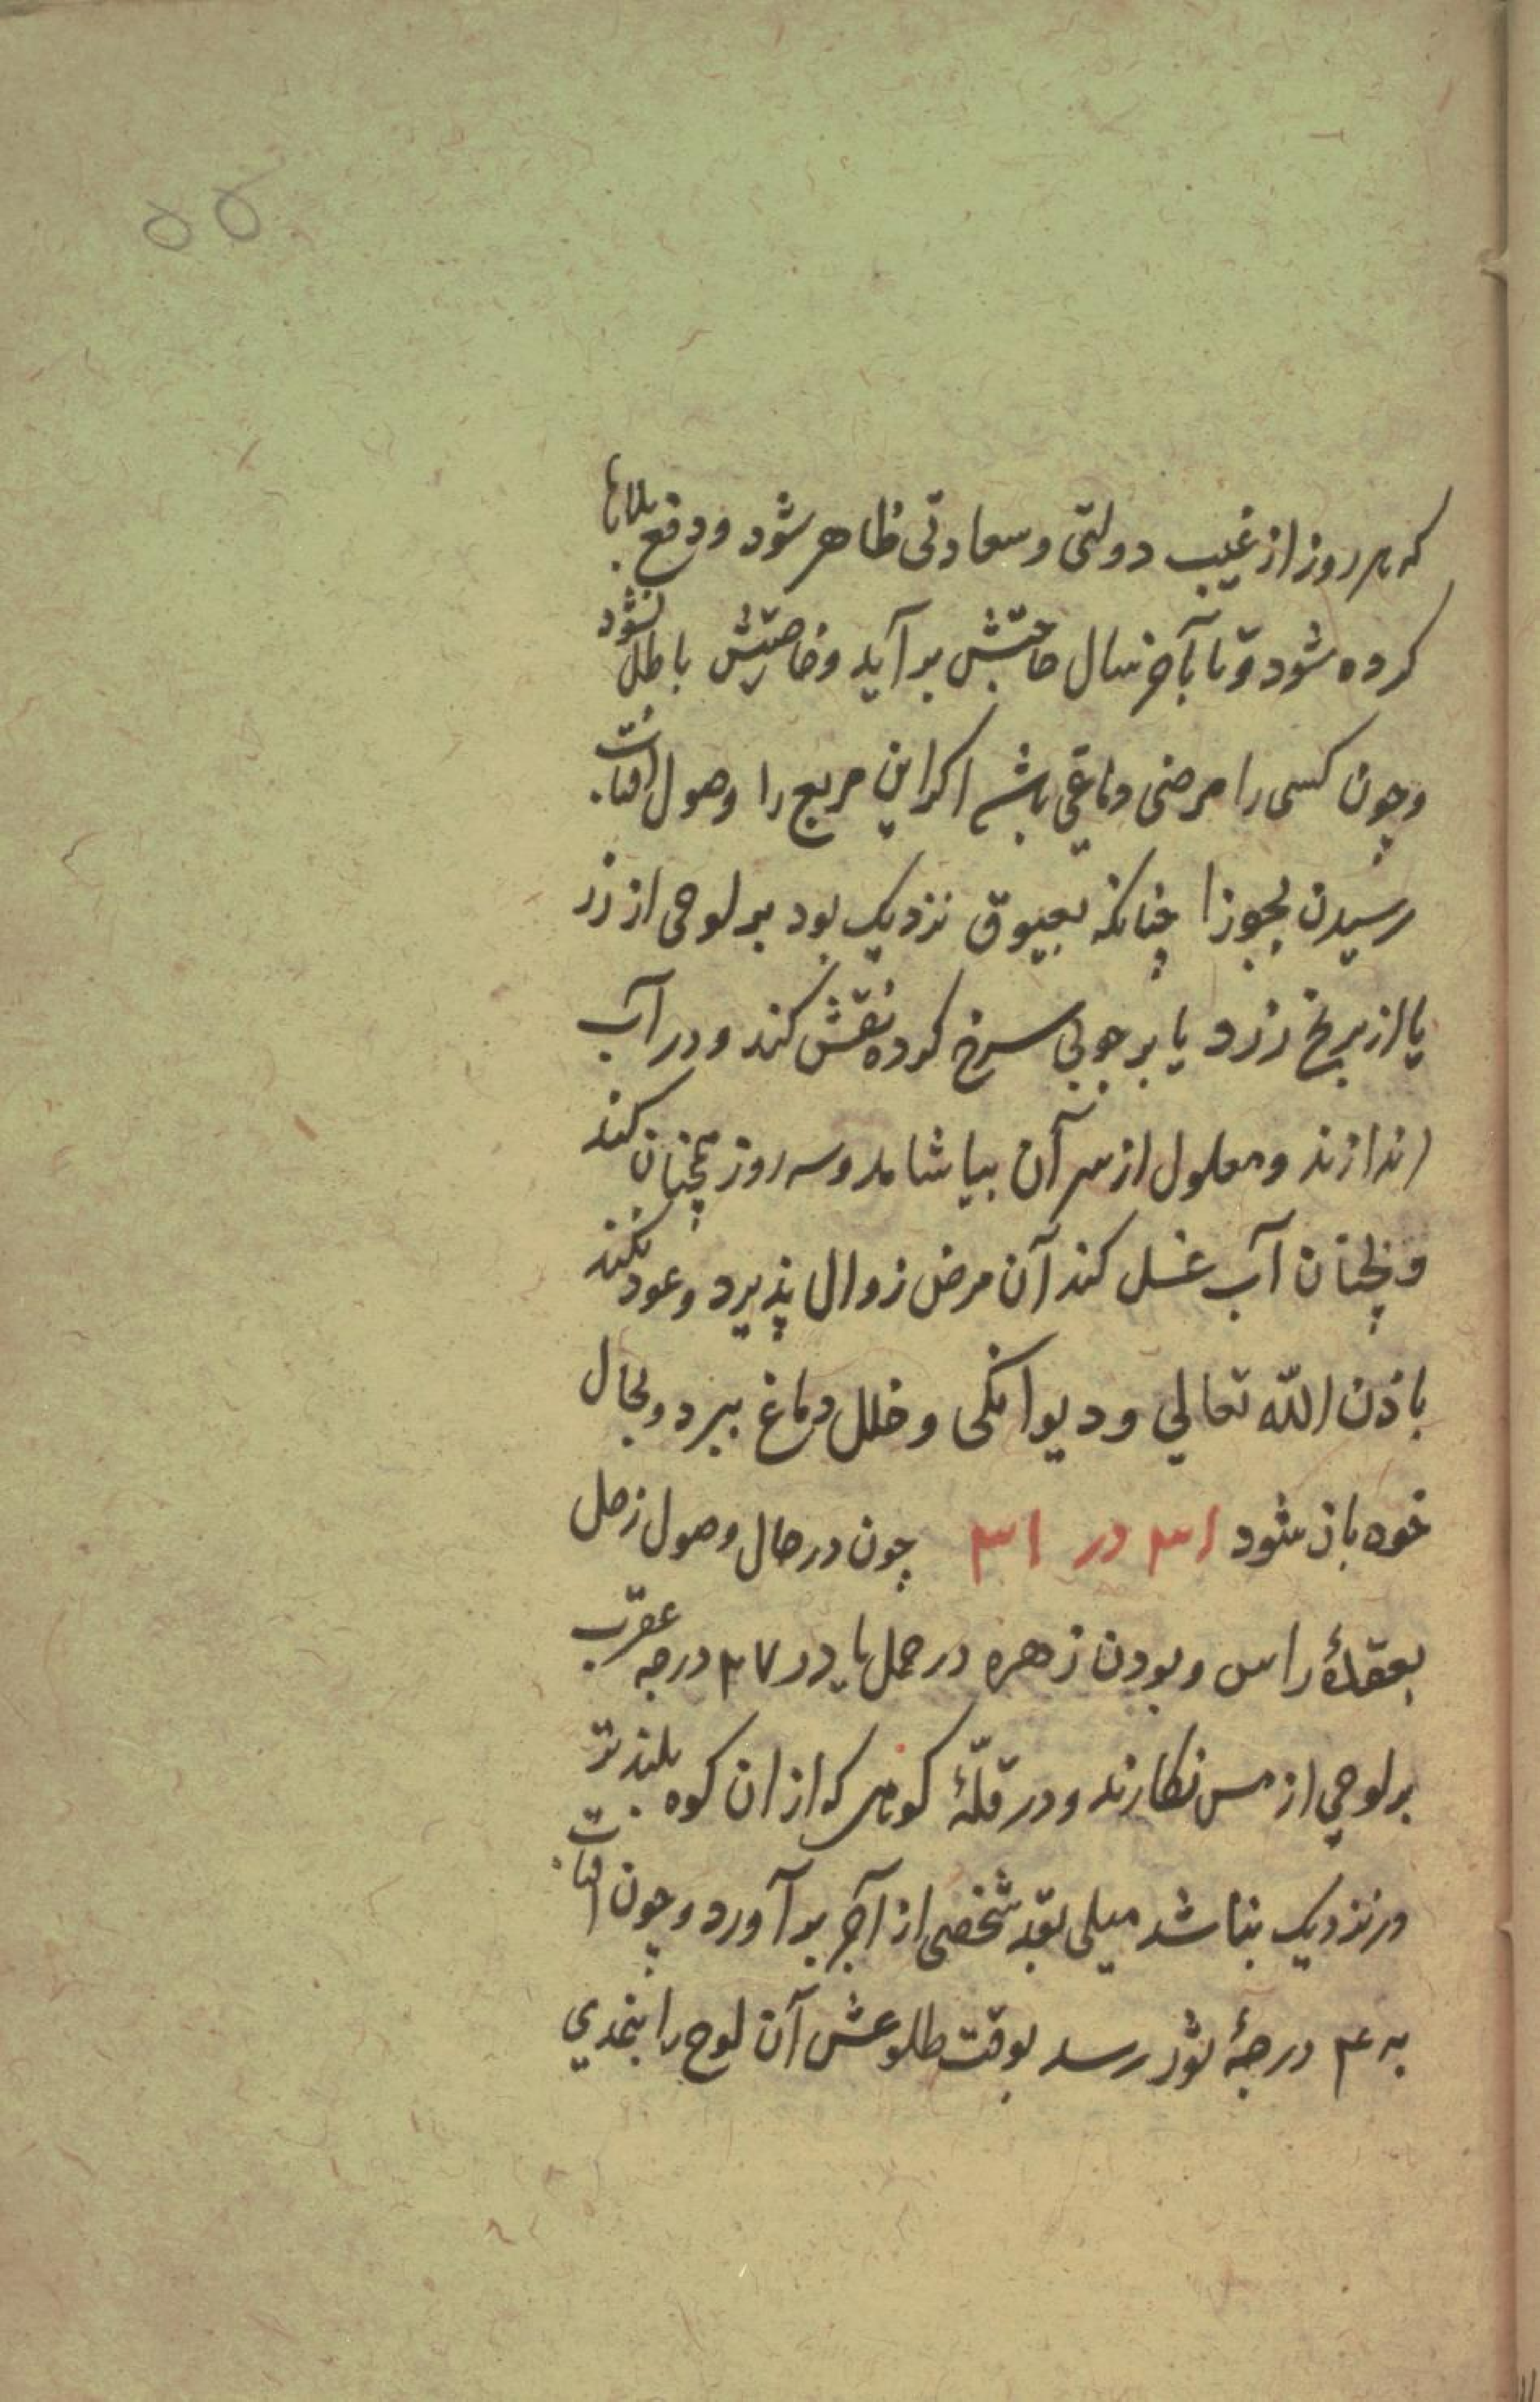 ۵۵
که هر روز از غیب دولتی و سعادتی ظاهر شود و دفع بلاها
کرده شود و تا بآخر سال حاجتش بر آید و خاصیتش باطل نشود
و چون کسی را مرضی دماغی باشد اکر این مربع را وصول افتاب
رسیدن بجوزا چنانکه بعیوق نزدیک بود بر لوحی از زر
یا از برنج زرد یا بر چوبی سرخ کرده نقش کند و در آب
اندازند و معلول از سر آن بیاشامد و سه روز همچنان کند
و بچنان آب غسل کند آن مرض زوال پذیرد و عود نکند
باذن الله تعالی و دیوانکی و خلل دماغ ببرد و بحال
خود باز شود ۳۱ در ۳۱ چون در حال وصول زحل
بعقدۀ راس و بودن زهره در حمل یا در ۲۷ درجه عقرب
بر لوحی از مس نکارند و در قلّۀ کوهی که از ان کوه بلندتر
در نزدیک نباشد میلی بقد شخصی از آجر بر آورد و چون افتاب
به ۴ درجۀ ثور رسد بوقت طلوعش آن لوح را بنحدی